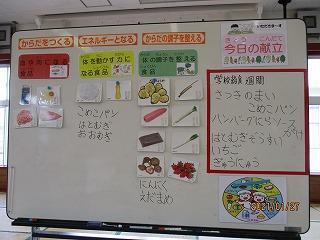 からだをつくる
エネルギーとなる
からだの調子を整える
食品
体を動かす力に
なる食品
体の調子を整える
食品
こめこパン
はとむぎ
おおむぎ
にんにく
えだまめ
きょう こんだて
今日の献立
学校給食週間
さつきのまい
こめこパン
ハンバーグにらソース
がけ
はとむぎぞうすい
いちご
ぎゅうにゅう
2021/01/27